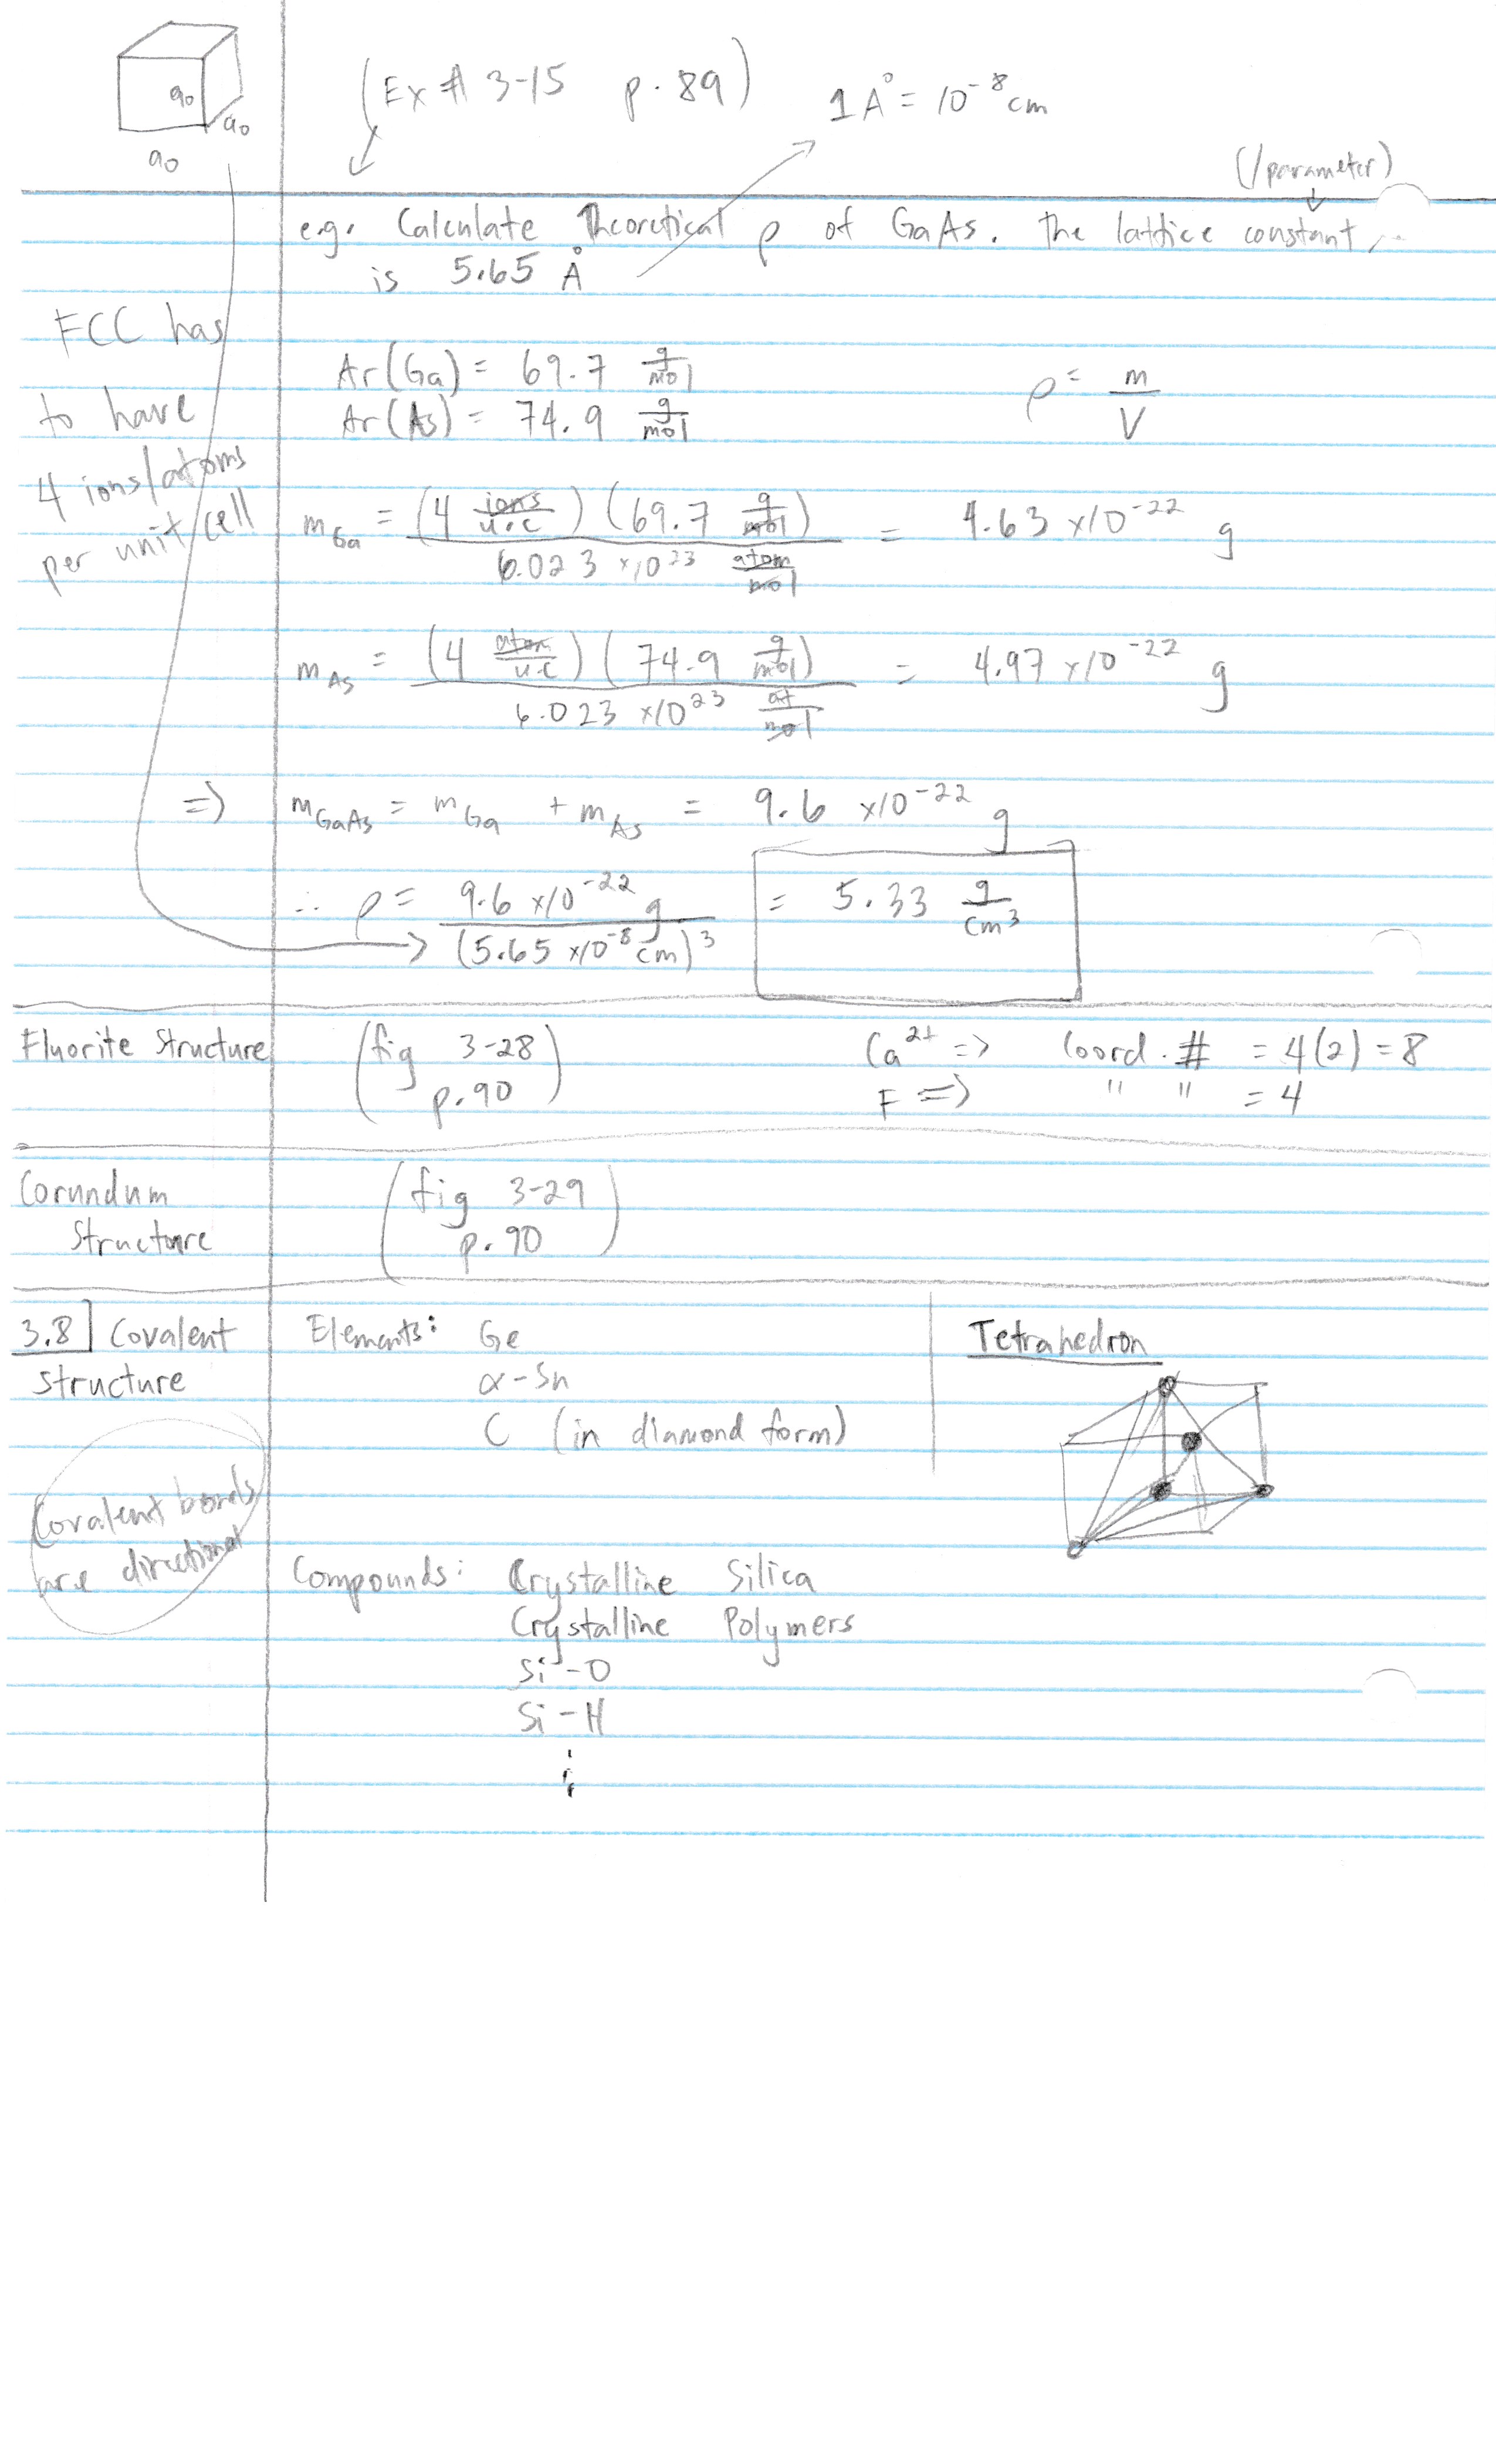 a₀
a₀
a₀
(Ex # 3-15 p. 89)
1 Å = 10⁻⁸ cm
(/parameter)
e.g. Calculate Theoretical ρ of GaAs. The lattice constant
is 5.65 Å
FCC has
to have
4 ions/atoms
per unit cell
Ar(Ga) = 69.7 g/mol
Ar(As) = 74.9 g/mol
ρ = m/V
m_Ga = (4 ions/u.c) (69.7 g/mol) / 6.023 x10²³ atom/mol = 4.63 x10⁻²² g
m_As = (4 atom/u.c) (74.9 g/mol) / 6.023 x10²³ at/mol = 4.97 x10⁻²² g
=> m_GaAs = m_Ga + m_As = 9.6 x10⁻²² g
∴ ρ = 9.6 x10⁻²² g / (5.65 x10⁻⁸ cm)³ = 5.33 g/cm³
Fluorite Structure
(fig 3-28
p. 90)
Ca²⁺ => Coord. # = 4(2) = 8
F => " " = 4
Corundum
Structure
(fig 3-29
p. 90)
3.8 Covalent
structure
Elements: Ge
α-Sn
C (in diamond form)
Tetrahedron
Covalent bonds
are directional
Compounds: Crystalline Silica
Crystalline Polymers
Si-O
Si-H
⋮